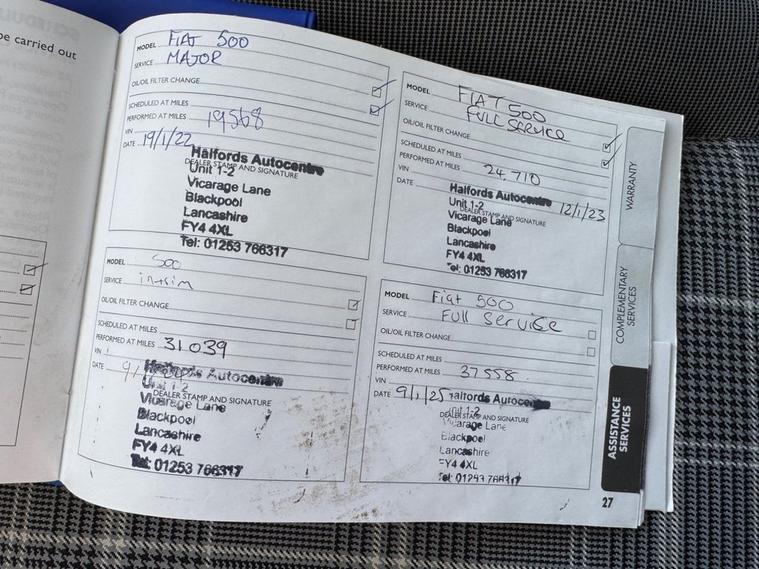 be carried out
MODEL FIAT 500
SERVICE MAJOR
OIL/OIL FILTER CHANGE
SCHEDULED AT MILES
PERFORMED AT MILES 19568
VIN
DATE 19/1/22
Halfords Autocentre
DEALER STAMP AND SIGNATURE
Unit 1-2
Vicarage Lane
Blackpool
Lancashire
FY4 4XL
Tel: 01253 766317
MODEL FIAT 500
SERVICE FULL SERVICE
OIL/OIL FILTER CHANGE
SCHEDULED AT MILES
PERFORMED AT MILES 24.710
VIN
DATE 12/1/23
Halfords Autocentre
Unit 1-2
DEALER STAMP AND SIGNATURE
Vicarage Lane
Blackpool
Lancashire
FY4 4XL
Tel: 01253 766317
MODEL 500
SERVICE interim
OIL/OIL FILTER CHANGE
SCHEDULED AT MILES
PERFORMED AT MILES 31039
VIN
DATE 9/
Halfords Autocentre
Unit 1-2
DEALER STAMP AND SIGNATURE
Vicarage Lane
Blackpool
Lancashire
FY4 4XL
Tel: 01253 766317
MODEL Fiat 500
SERVICE Full Service
OIL/OIL FILTER CHANGE
SCHEDULED AT MILES
PERFORMED AT MILES 37558
VIN
DATE 9/1/25 Halfords Autocentre
Unit 1-2
DEALER STAMP AND SIGNATURE
Vicarage Lane
Blackpool
Lancashire
FY4 4XL
Tel:
WARRANTY
COMPLEMENTARY
SERVICES
ASSISTANCE
SERVICES
27